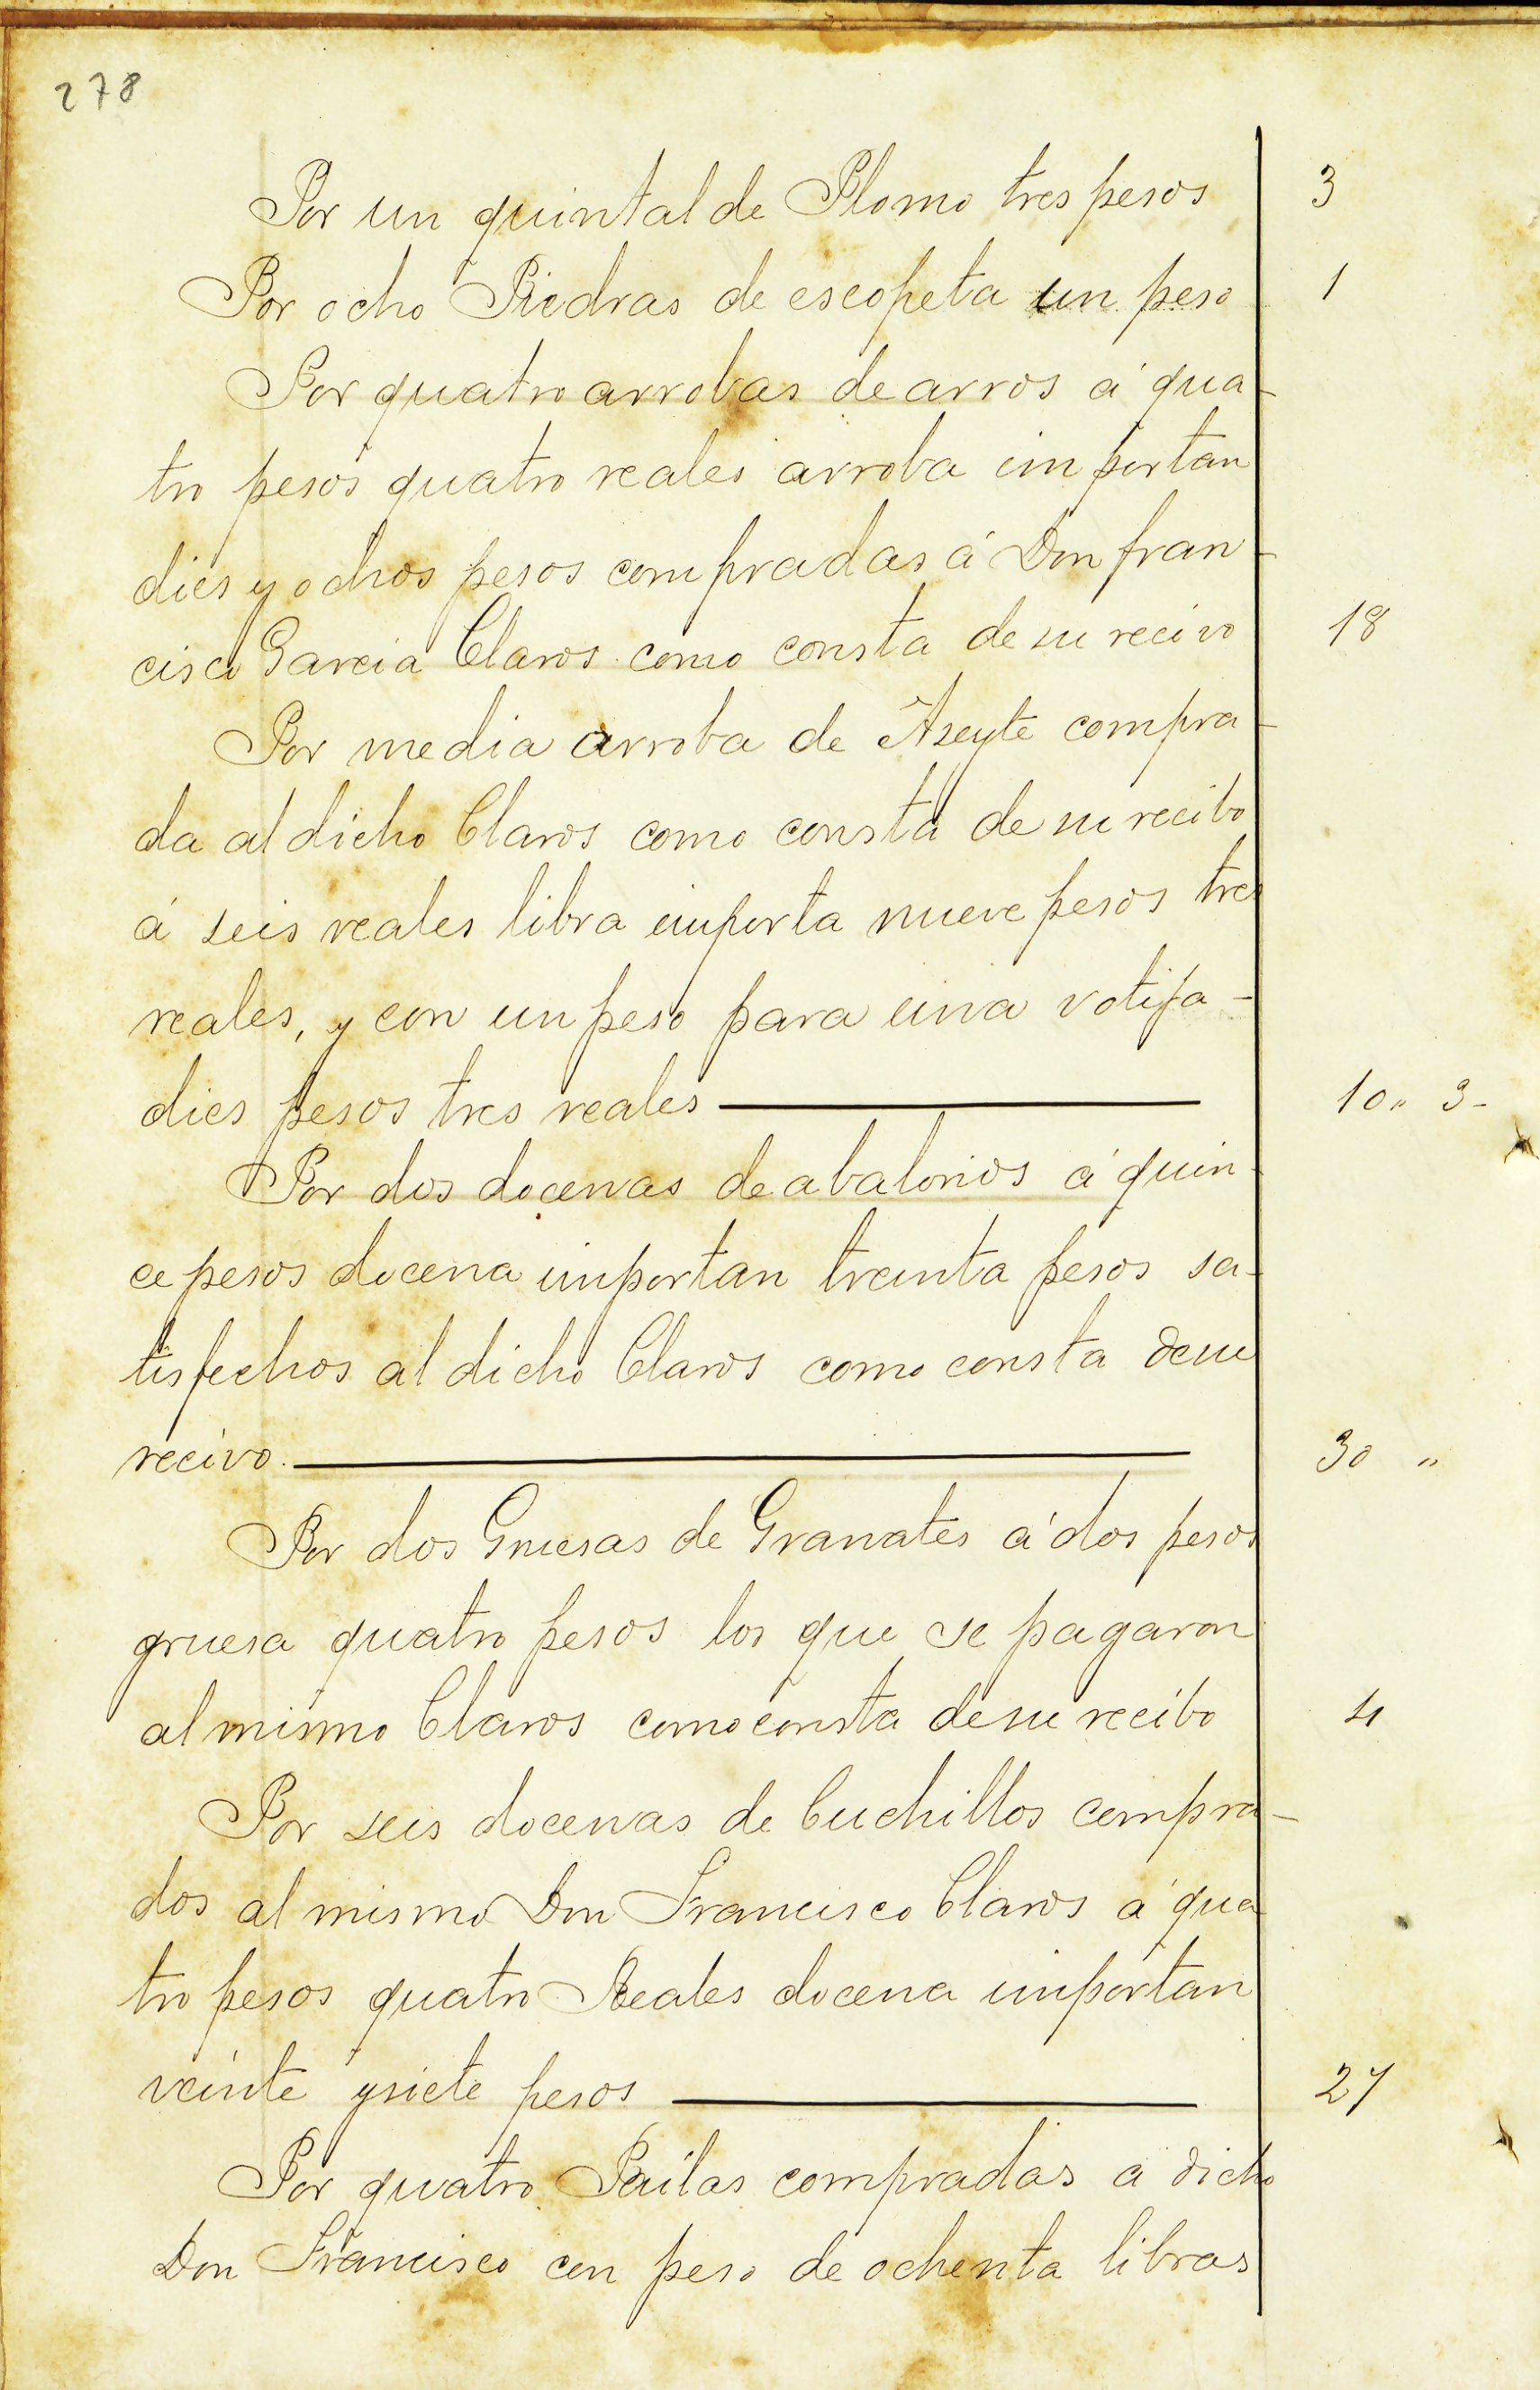 278
Por un quintal de Plomo tres pesos 3
Por ocho Piedras de escopeta un peso 1
Por quatro arrobas de arros á qua-
tro pesos quatro reales arroba importan
dies y ochos pesos compradas á Don fran-
cisco Garcia Claros como consta de su recivo 18
Por media arroba de Azeyte compra-
da al dicho Claros como consta de su recibo
á seis reales libra importa nueve pesos tres
reales, y con un peso para una votija-
dies pesos tres reales 10,, 3-
Por dos docenas de abalorios á quin-
ce pesos docena importan treinta pesos sa-
tisfechos al dicho Claros como consta de su
recivo. 30 ,,
Por dos Gruesas de Granates á dos pesos
gruesa quatro pesos los que se pagaron
al mismo Claros como consta de su recibo 4
Por seis docenas de Cuchillos compra-
dos al mismo Don Francisco Claros á qua
tro pesos quatro Reales docena importan
veinte y siete pesos 27
Por quatro Pailas compradas á dicho
Don Francisco con peso de ochenta libras